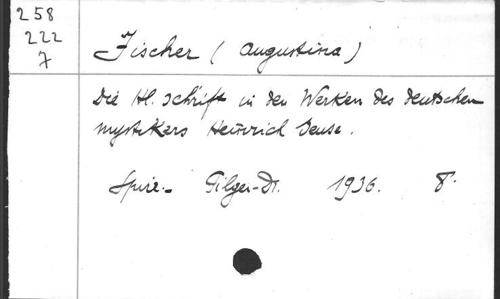 258
222
7
Fischer (Augustina)
Die Hl. Schrift in den Werken des deutschen
mystikers Heinrich Seuse.
Spire.- Pilger-Dr. 1936. 8°.